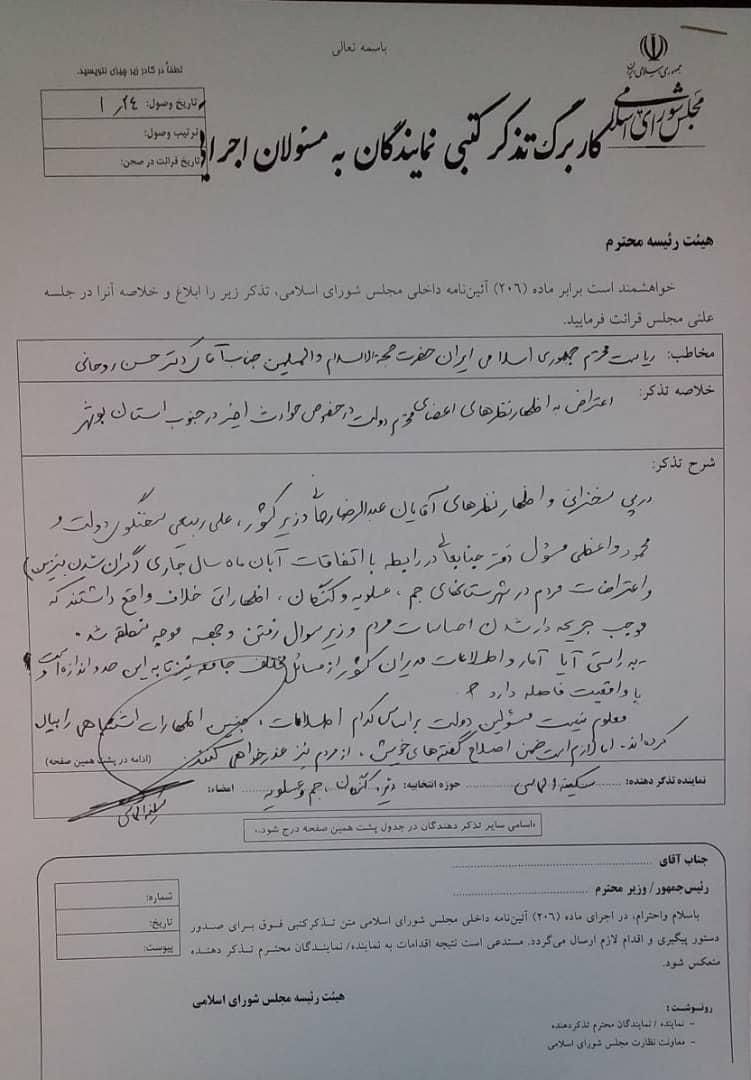 باسمه تعالی
جمهوری اسلامی ایران
مجلس شورای اسلامی
لطفاً در کادر زیر چیزی ننویسید.
تاریخ وصول:
ترتیب وصول:
تاریخ قرائت در صحن:
کاربرگ تذکر کتبی نمایندگان به مسئولان اجرایی
هیئت رئیسه محترم
خواهشمند است برابر ماده (۲۰۶) آئین‌نامه داخلی مجلس شورای اسلامی، تذکر زیر را ابلاغ و خلاصه آنرا در جلسه
علنی مجلس قرائت فرمایید.
مخاطب: ریاست محترم جمهوری اسلامی ایران حضرت حجة الاسلام والمسلمین جناب آقای دکتر حسن روحانی
خلاصه تذکر: اعتراض به اظهارنظرهای اعضای محترم دولت در خصوص حوادث اخیر در جنوب استان بوشهر
شرح تذکر:
در پی سخنرانی و اظهارنظرهای آقایان عبدالرضا رحمانی وزیر کشور، علی ربیعی سخنگوی دولت و
محمود واعظی مسؤل دفتر جنابعالی در رابطه با اتفاقات آبان ماه سال جاری (گران شدن بنزین)
و اعتراضات مردم در شهرستانهای جم، عسلویه و کنگان، اظهاراتی خلاف واقع داشتند که
موجب جریحه دار شدن احساسات مردم و زیر سوال رفتن وجهه موجه منطقه شد.
- به راستی آیا آمار و اطلاعات مدیران کشور از مسائل مختلف جامعه نیز تا به این حد و اندازه است و
با واقعیت فاصله دارد ؟
معلوم نیست مسؤلین دولت بر اساس کدام اطلاعات، چنین اظهارات اشتباهی را بیان
کرده‌اند. اما لازم است ضمن اصلاح گفته‌های خویش، از مردم نیز عذرخواهی کنند
(ادامه در پشت همین صفحه)
نماینده تذکر دهنده: سکینه الماسی حوزه انتخابیه: دیر، کنگان، جم و عسلویه امضاء:
سکینه الماسی
«اسامی سایر تذکر دهندگان در جدول پشت همین صفحه درج شود.»
جناب آقای
رئیس‌جمهور/ وزیر محترم
باسلام واحترام، در اجرای ماده (۲۰۶) آئین‌نامه داخلی مجلس شورای اسلامی متن تذکرکتبی فوق برای صدور
دستور پیگیری و اقدام لازم ارسال می‌گردد. مستدعی است نتیجه اقدامات به نماینده/ نمایندگان محترم تذکر دهنده
منعکس شود.
شماره:
تاریخ:
پیوست:
هیئت رئیسه مجلس شورای اسلامی
رونوشت:
- نماینده / نمایندگان محترم تذکردهنده
- معاونت نظارت مجلس شورای اسلامی